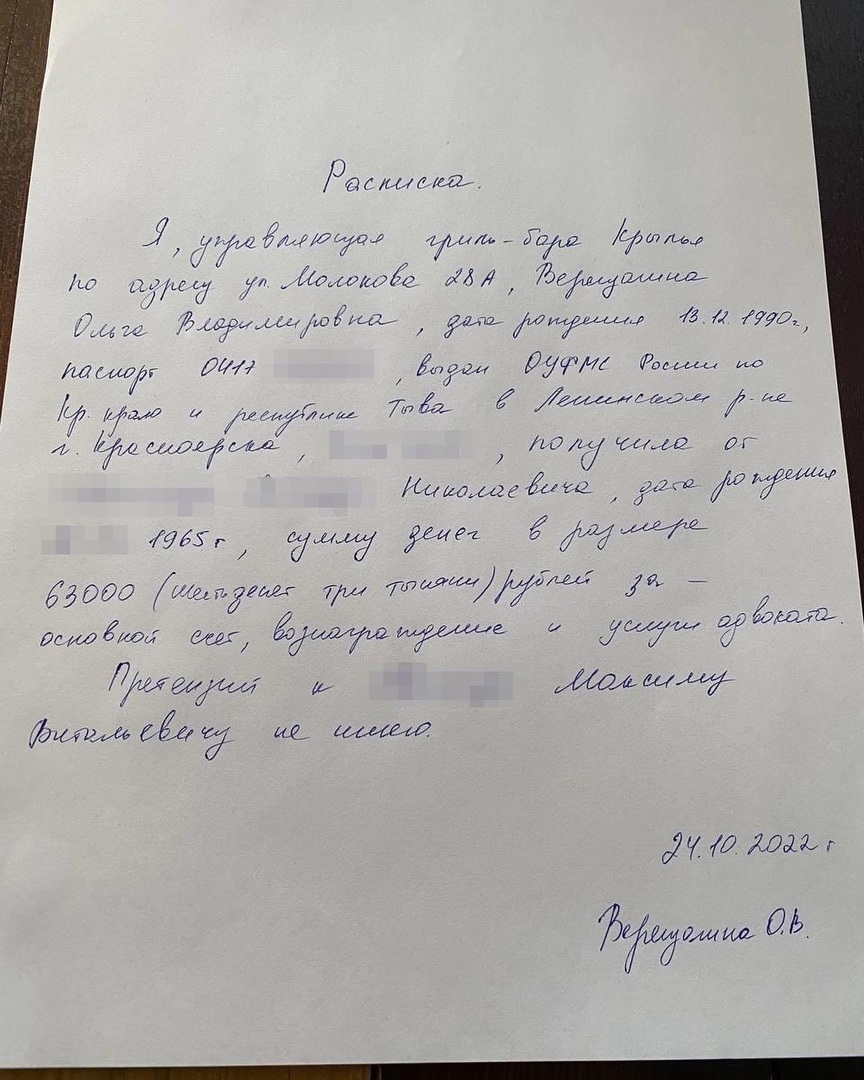 Расписка.
Я, управляющая гриль-бара Крылья
по адресу ул. Молокова 28А,
Ольга Владимировна, дата рождения 13.12.1990г,
паспорт 0417 , выдан ОУФМС России по
Кр. краю и республике Тыва в Ленинском р-не
г. Красноярска, , получила от
Николаевича, дата рождения
1965г, сумму денег в размере
63000 (шестьдесят три тысячи) рублей за –
основной счет, вознаграждение и услуги адвоката.
Претензий к Максиму
Витальевичу не имею.
24.10.2022 г
О.В.